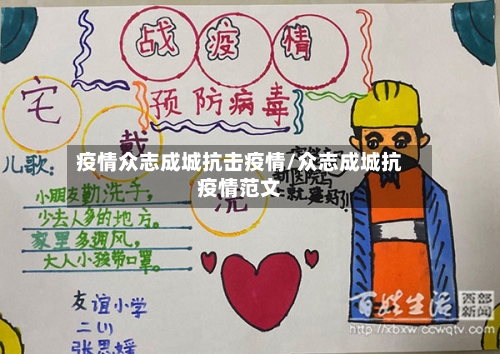 战疫情
预防病毒
宅
戴
疫情众志成城抗击疫情/众志成城抗
疫情范文
洗
儿歌:
小朋友勤洗手,
少去人多的地方。
家里多通风,
大人小孩带口罩。
就是好!
友谊小学
二(1)
张思媛
百姓生活
西部
新闻
http://xbxw.ccwqtv.com/